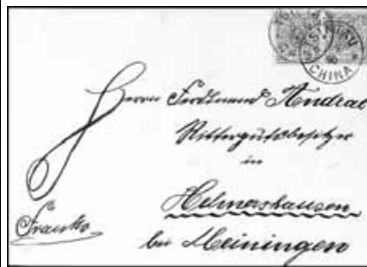 CHINA
Herrn Ferdinand Andrae
Rittergutsbesitzer
in
Helmershausen
Franko
bei Meiningen